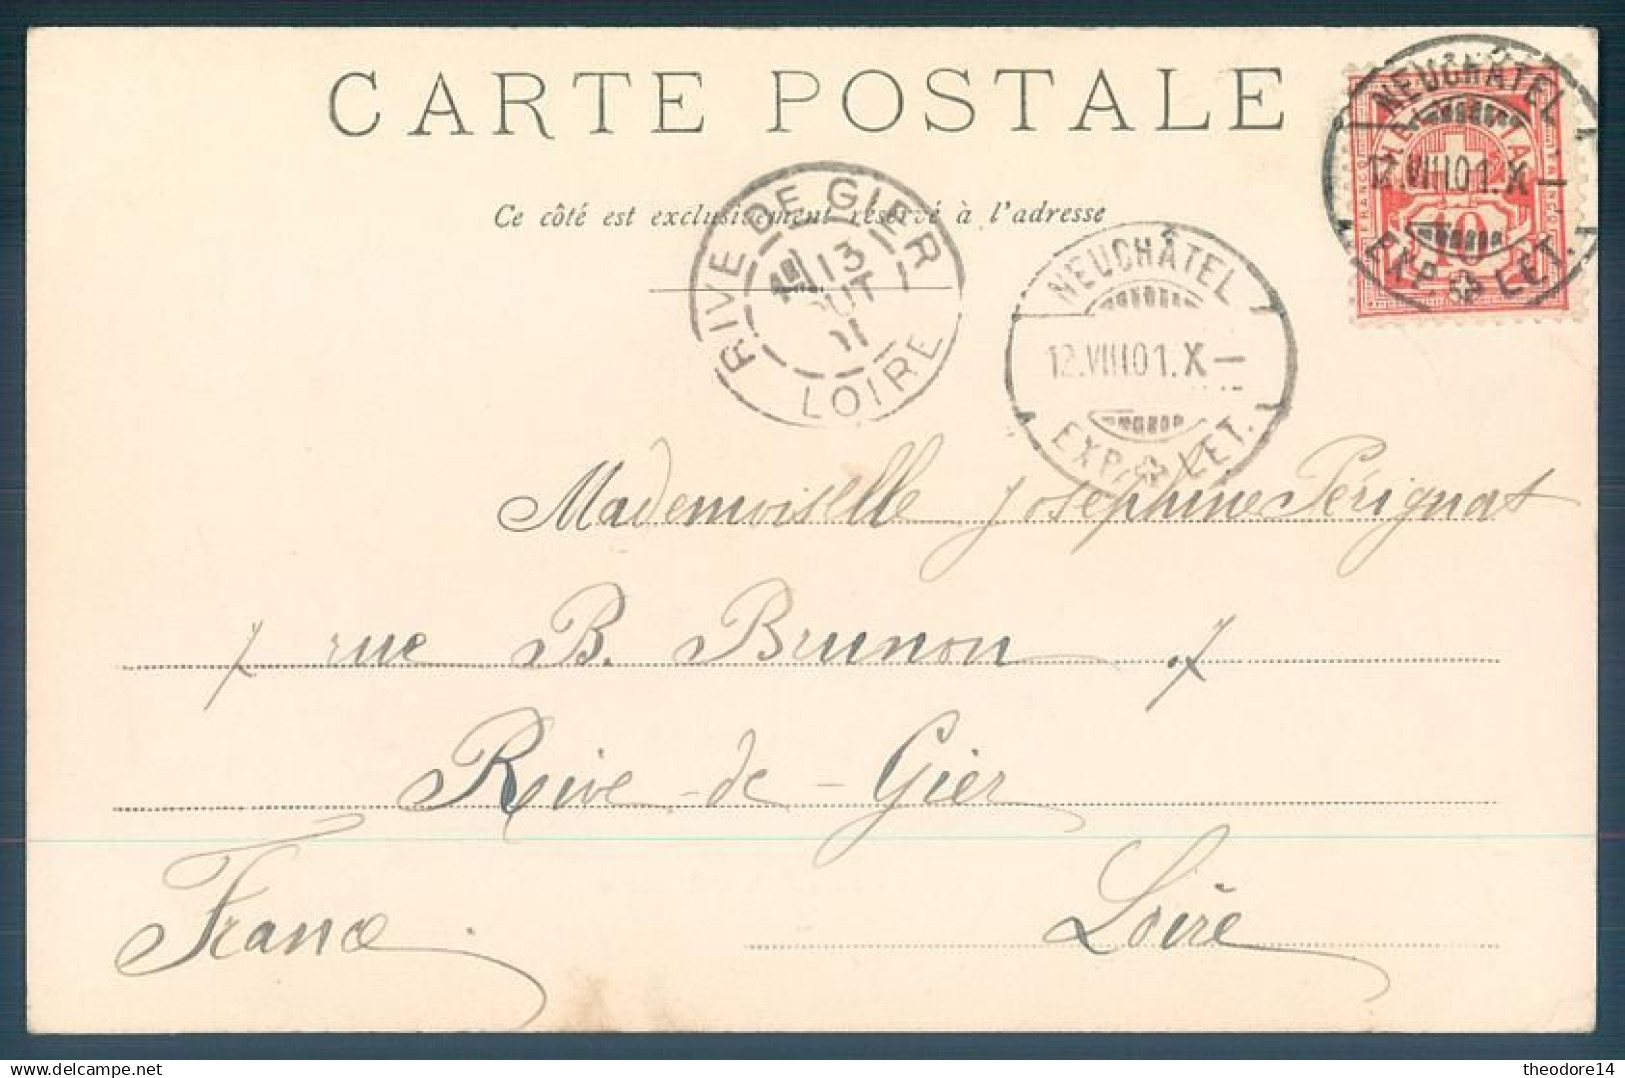 CARTE POSTALE
Ce côté est exclusivement réservé à l'adresse
NEUCHÂTEL
12.VIII.01.X
EXP. LET.
FRANCO
10
RIVE DE GIER
13
LOIRE
NEUCHÂTEL
12.VIII.01.X
EXP. LET.
Mademoiselle Joséphine Pérignat
7 rue B. Brunon 7
Rive-de-Gier
Loire
France.
delcampe.net
theodore14